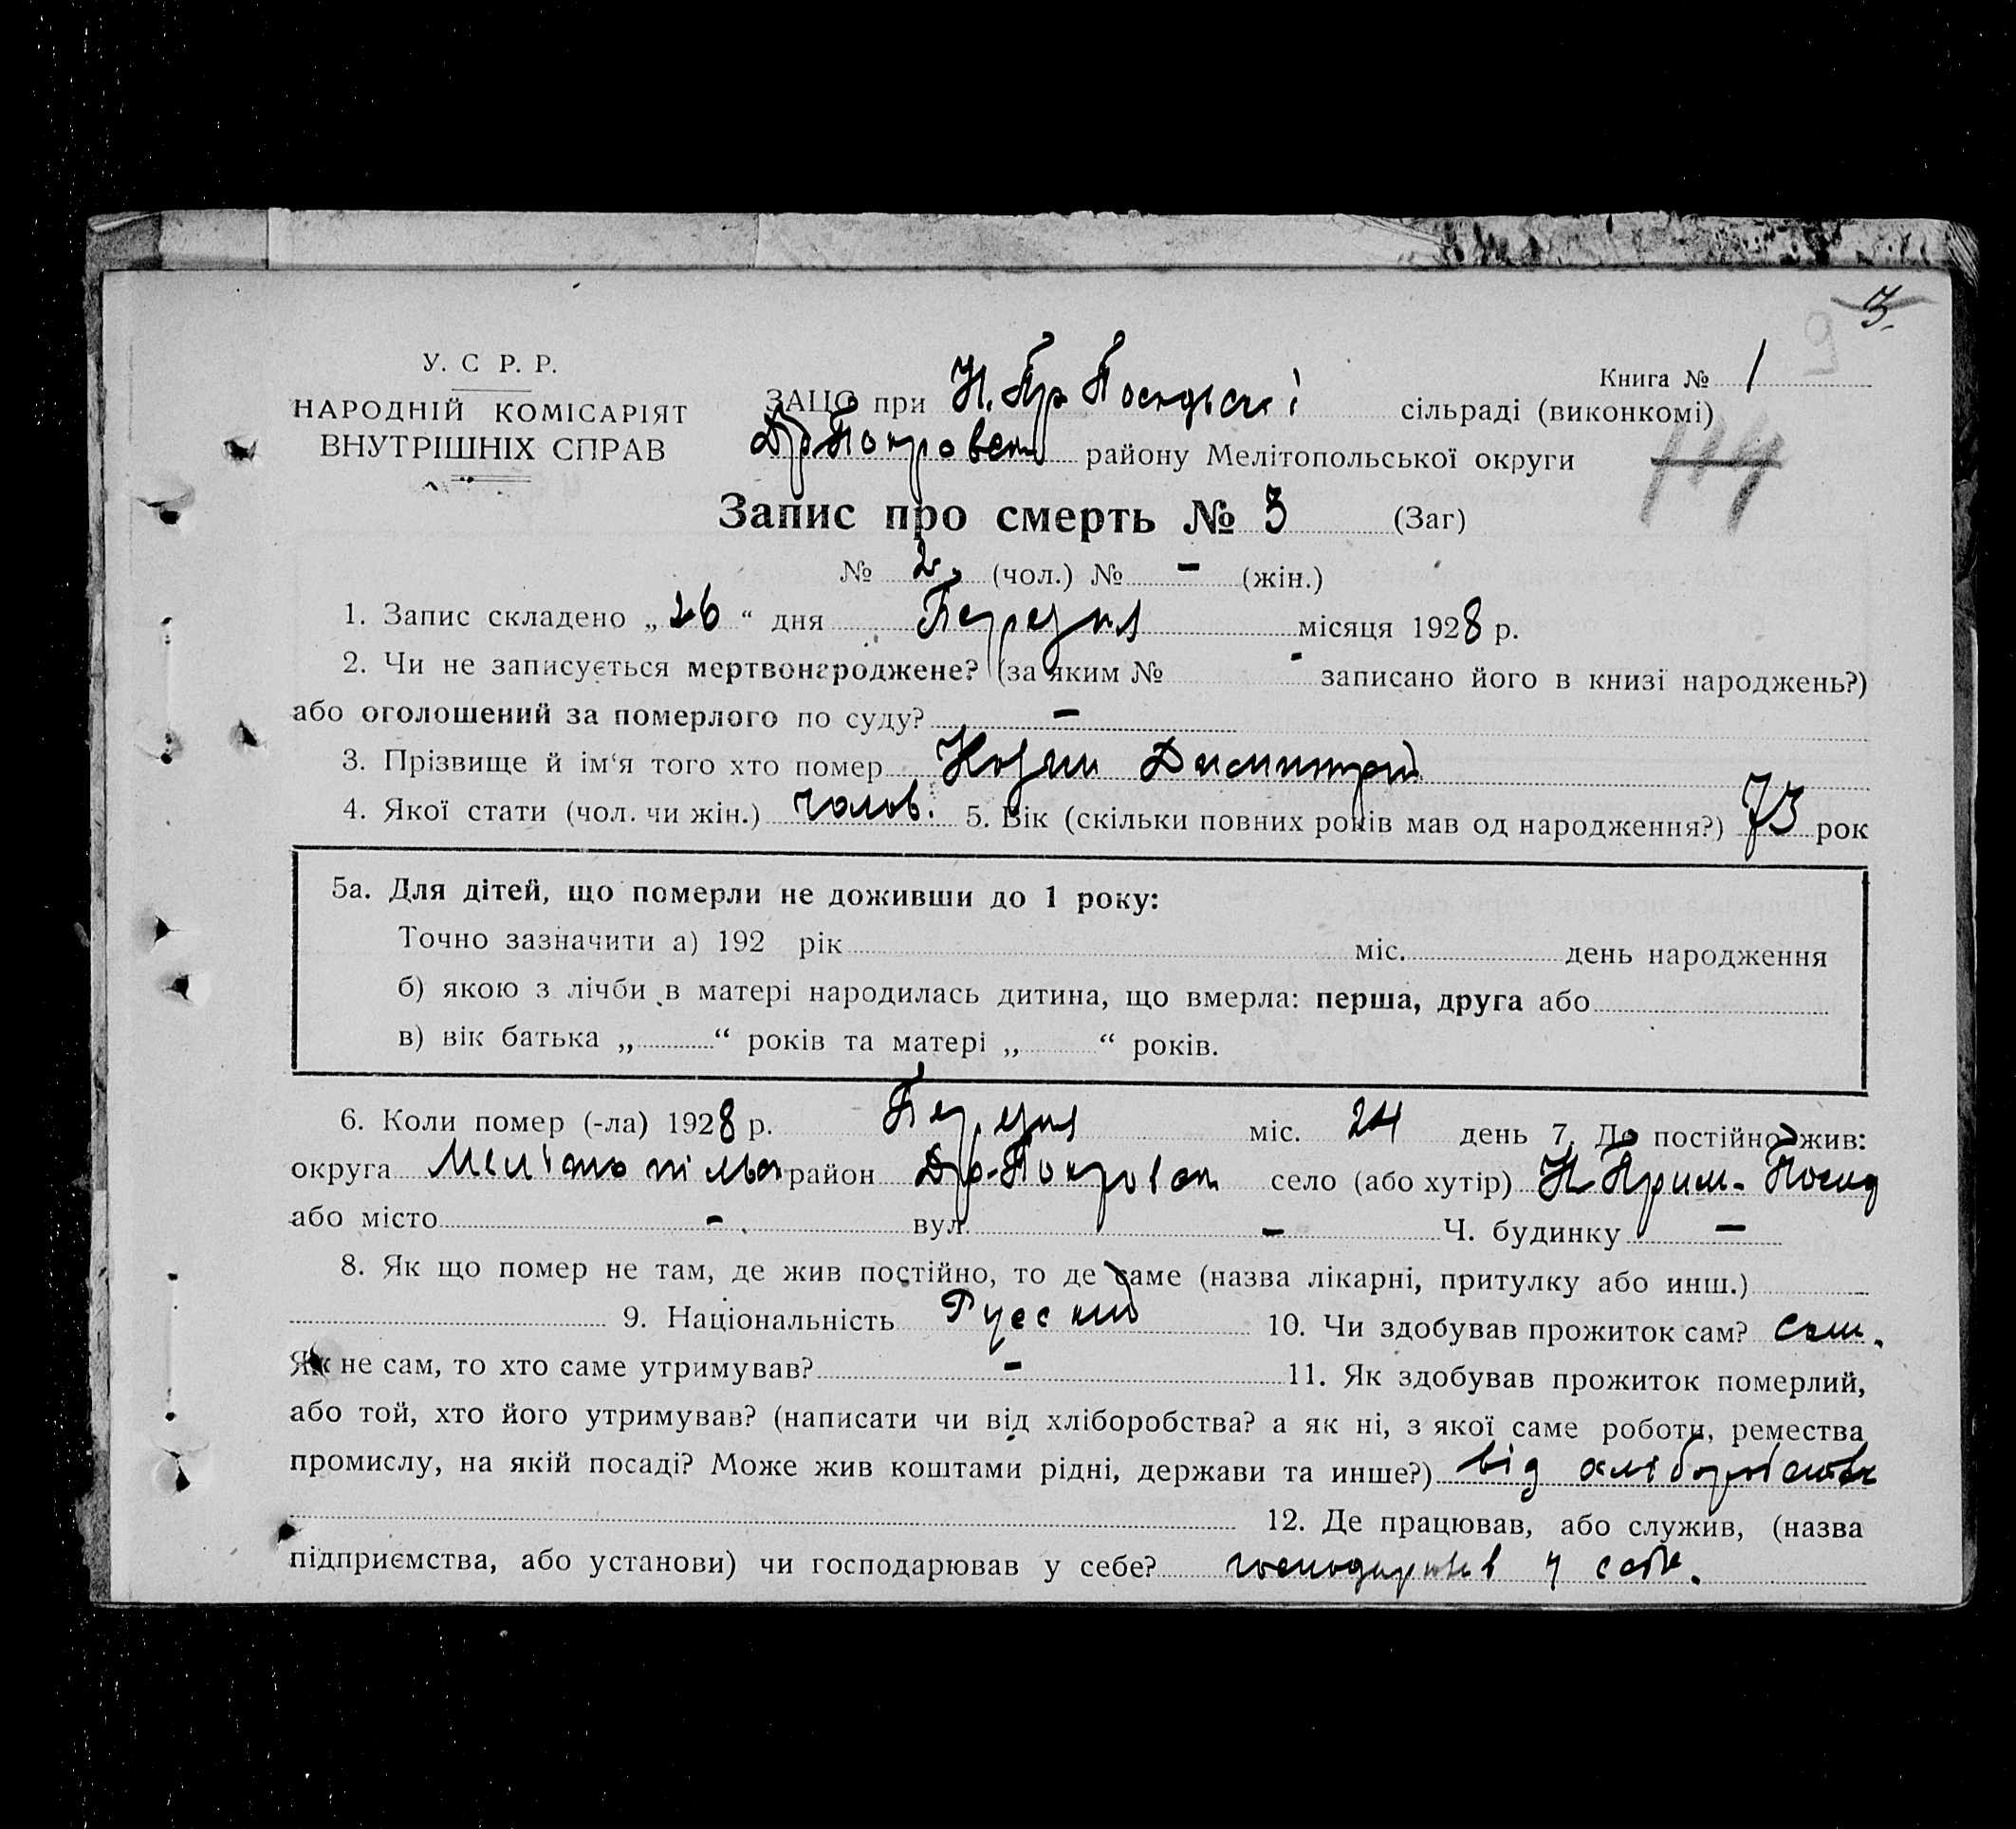 3.
У. С Р. Р.
НАРОДНІЙ КОМІСАРІЯТ
ВНУТРІШНІХ СПРАВ
Книга № 1
ЗАЦС при Н. Пр Посадські сільраді (виконкомі)
Др Покровськ району Мелітопольської округи
114
Запис про смерть № 3 (Заг)
№ 2. (чол.) № - (жін.)
1. Запис складено „26“ дня Березня місяця 1928 р.
2. Чи не записується мертвонароджене? (за яким № - записано його в книзі народжень?)
або оголошений за померлого по суду? -
3. Прізвище й ім‘я того хто помер Димитрий
4. Якої стати (чол. чи жін.) чолов. 5. Вік (скільки повних років мав од народження?) 73 рок
5а. Для дітей, що померли не доживши до 1 року:
Точно зазначити а) 192 рік міс. день народження
б) якою з лічби в матері народилась дитина, що вмерла: перша, друга або
в) вік батька „ “ років та матері „ “ років.
6. Коли помер (-ла) 1928 р. Березня міс. 24 день 7. Де постійно жив:
округа Мелітопільск район Др-Покровськ село (або хутір) Н Прим-Посад
або місто - вул. - Ч. будинку -
8. Як що помер не там, де жив постійно, то де саме (назва лікарні, притулку або инш.)
9. Національність Русский 10. Чи здобував прожиток сам? сам.
Як не сам, то хто саме утримував? - 11. Як здобував прожиток померлий,
або той, хто його утримував? (написати чи від хліборобства? а як ні, з якої саме роботи, ремества
промислу, на якій посаді? Може жив коштами рідні, держави та инше?) від хліборобства
12. Де працював, або служив, (назва
підприємства, або установи) чи господарював у себе? господарював у себе.